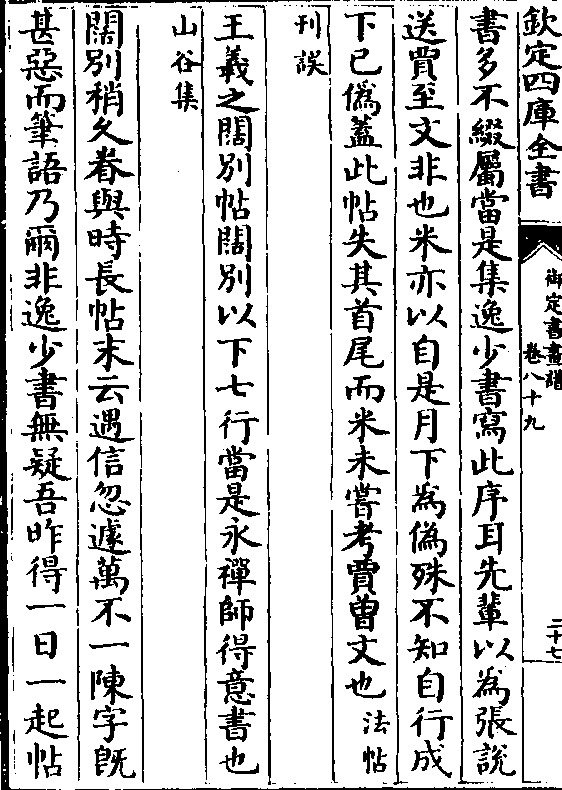 欽定四庫全書
御定書畫譜
卷八十九
二十七
書多不綴屬當是集逸少書寫此序耳先輩以為張說
送賈至文非也米亦以自是月下為偽殊不知自行成
下已偽蓋此帖失其首尾而米未嘗考賈曾文也法帖
刊誤
王羲之闊別帖闊別以下七行當是永禪師得意書也
山谷集
闊別稍久眷與時長帖末云遇信忽遽萬不一陳字既
甚惡而筆語乃爾非逸少書無疑吾昨得一日一起帖